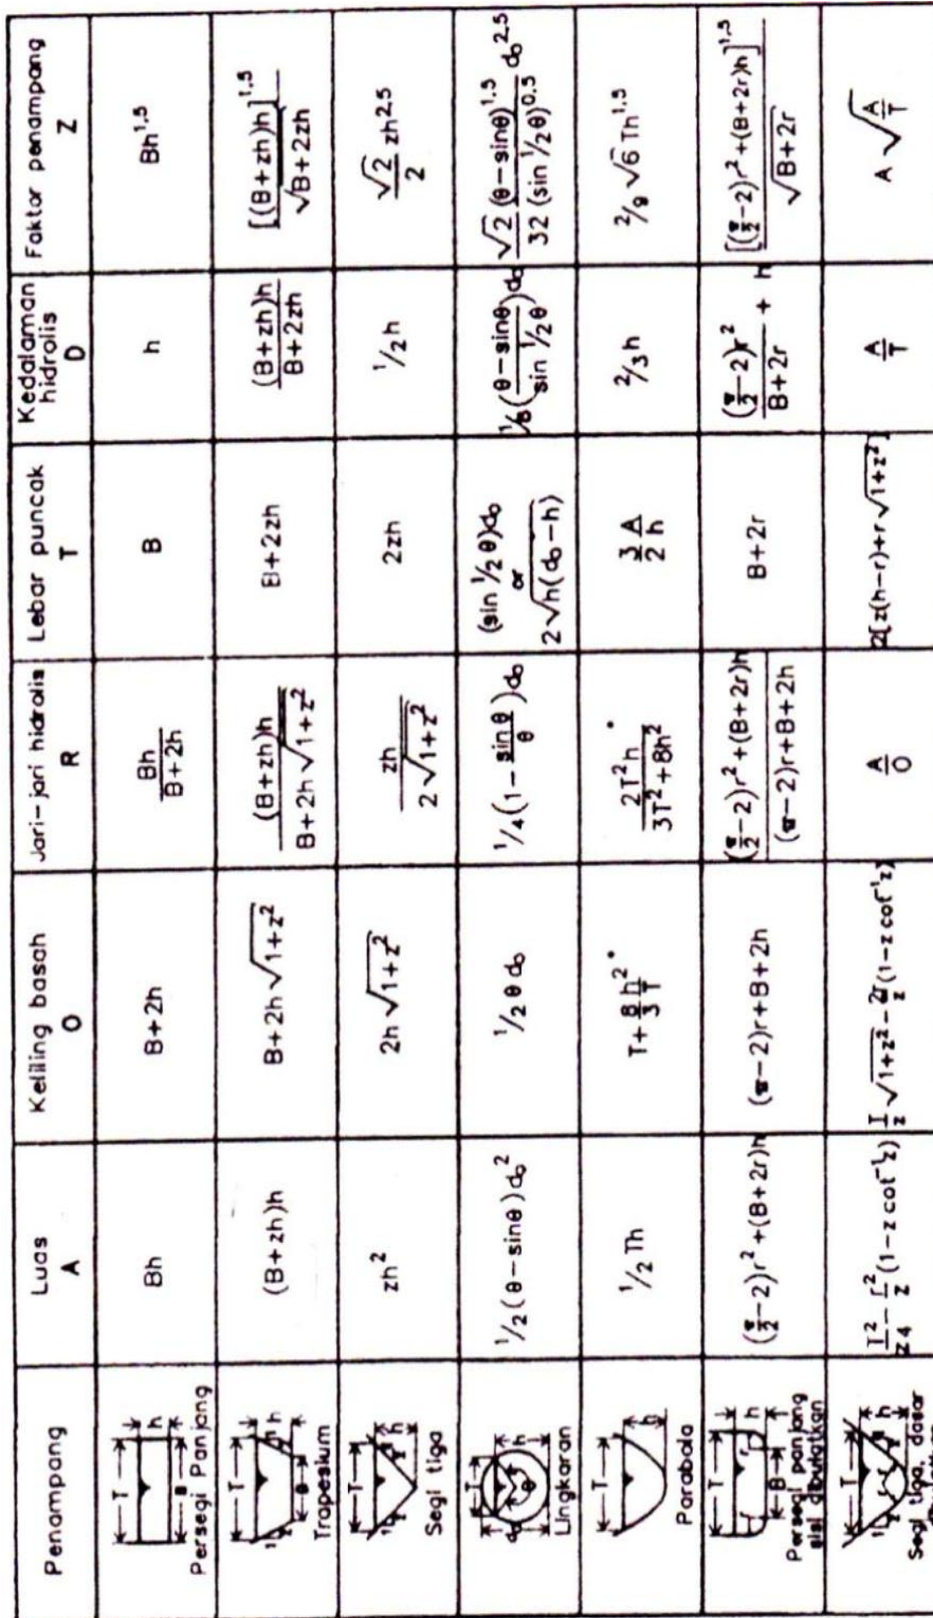 Penampang | Luas A | Keliling basah O | Jari-jari hidrolis R | Lebar puncak T | Kedalaman hidrolis D | Faktor penampang Z
T h B Persegi Panjang | Bh | B+2h | Bh/(B+2h) | B | h | Bh^1,5
T 1 z h B Trapesium | (B+zh)h | B+2h√(1+z²) | (B+zh)h/(B+2h√(1+z²)) | B+2zh | (B+zh)h/(B+2zh) | [(B+zh)h]^1,5/√B+2zh
T 1 z h Segi tiga | zh² | 2h√(1+z²) | zh/(2√(1+z²)) | 2zh | 1/2 h | √2/2 zh^2,5
T d₀ θ h Lingkaran | 1/2(θ-sinθ)d₀² | 1/2 θ d₀ | 1/4(1-sinθ/θ)d₀ | (sin 1/2 θ)d₀ or 2√(h(d₀-h)) | 1/8((θ-sinθ)/(sin 1/2θ))d₀ | √2/32 (θ-sinθ)^1,5/(sin 1/2θ)^0,5 d₀^2,5
T h Parabola | 1/2 Th | T+8/3 h²/T * | 2T²h/(3T²+8h²) * | 3/2 A/h | 2/3 h | 2/9 √6 Th^1,5
T r h B Persegi panjang sisi dibulatkan | (π/2-2)r²+(B+2r)h | (π-2)r+B+2h | ((π/2-2)r²+(B+2r)h)/((π-2)r+B+2h) | B+2r | (π/2-2)r²/(B+2r) + h | [(π/2-2)r²+(B+2r)h]^1,5/√(B+2r)
T 1 z r h Segi tiga, dasar | T²/z4 - r²/z (1-z cot⁻¹z) | T/z √(1+z²) - 2r/z (1-z cot⁻¹z) | A/O | 2[z(h-r)+r√(1+z²)] | A/T | A√(A/T)